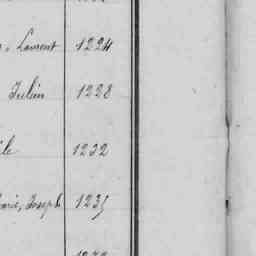 Laurent 1224
Julien 1228
1232
Marie, Joseph 1235